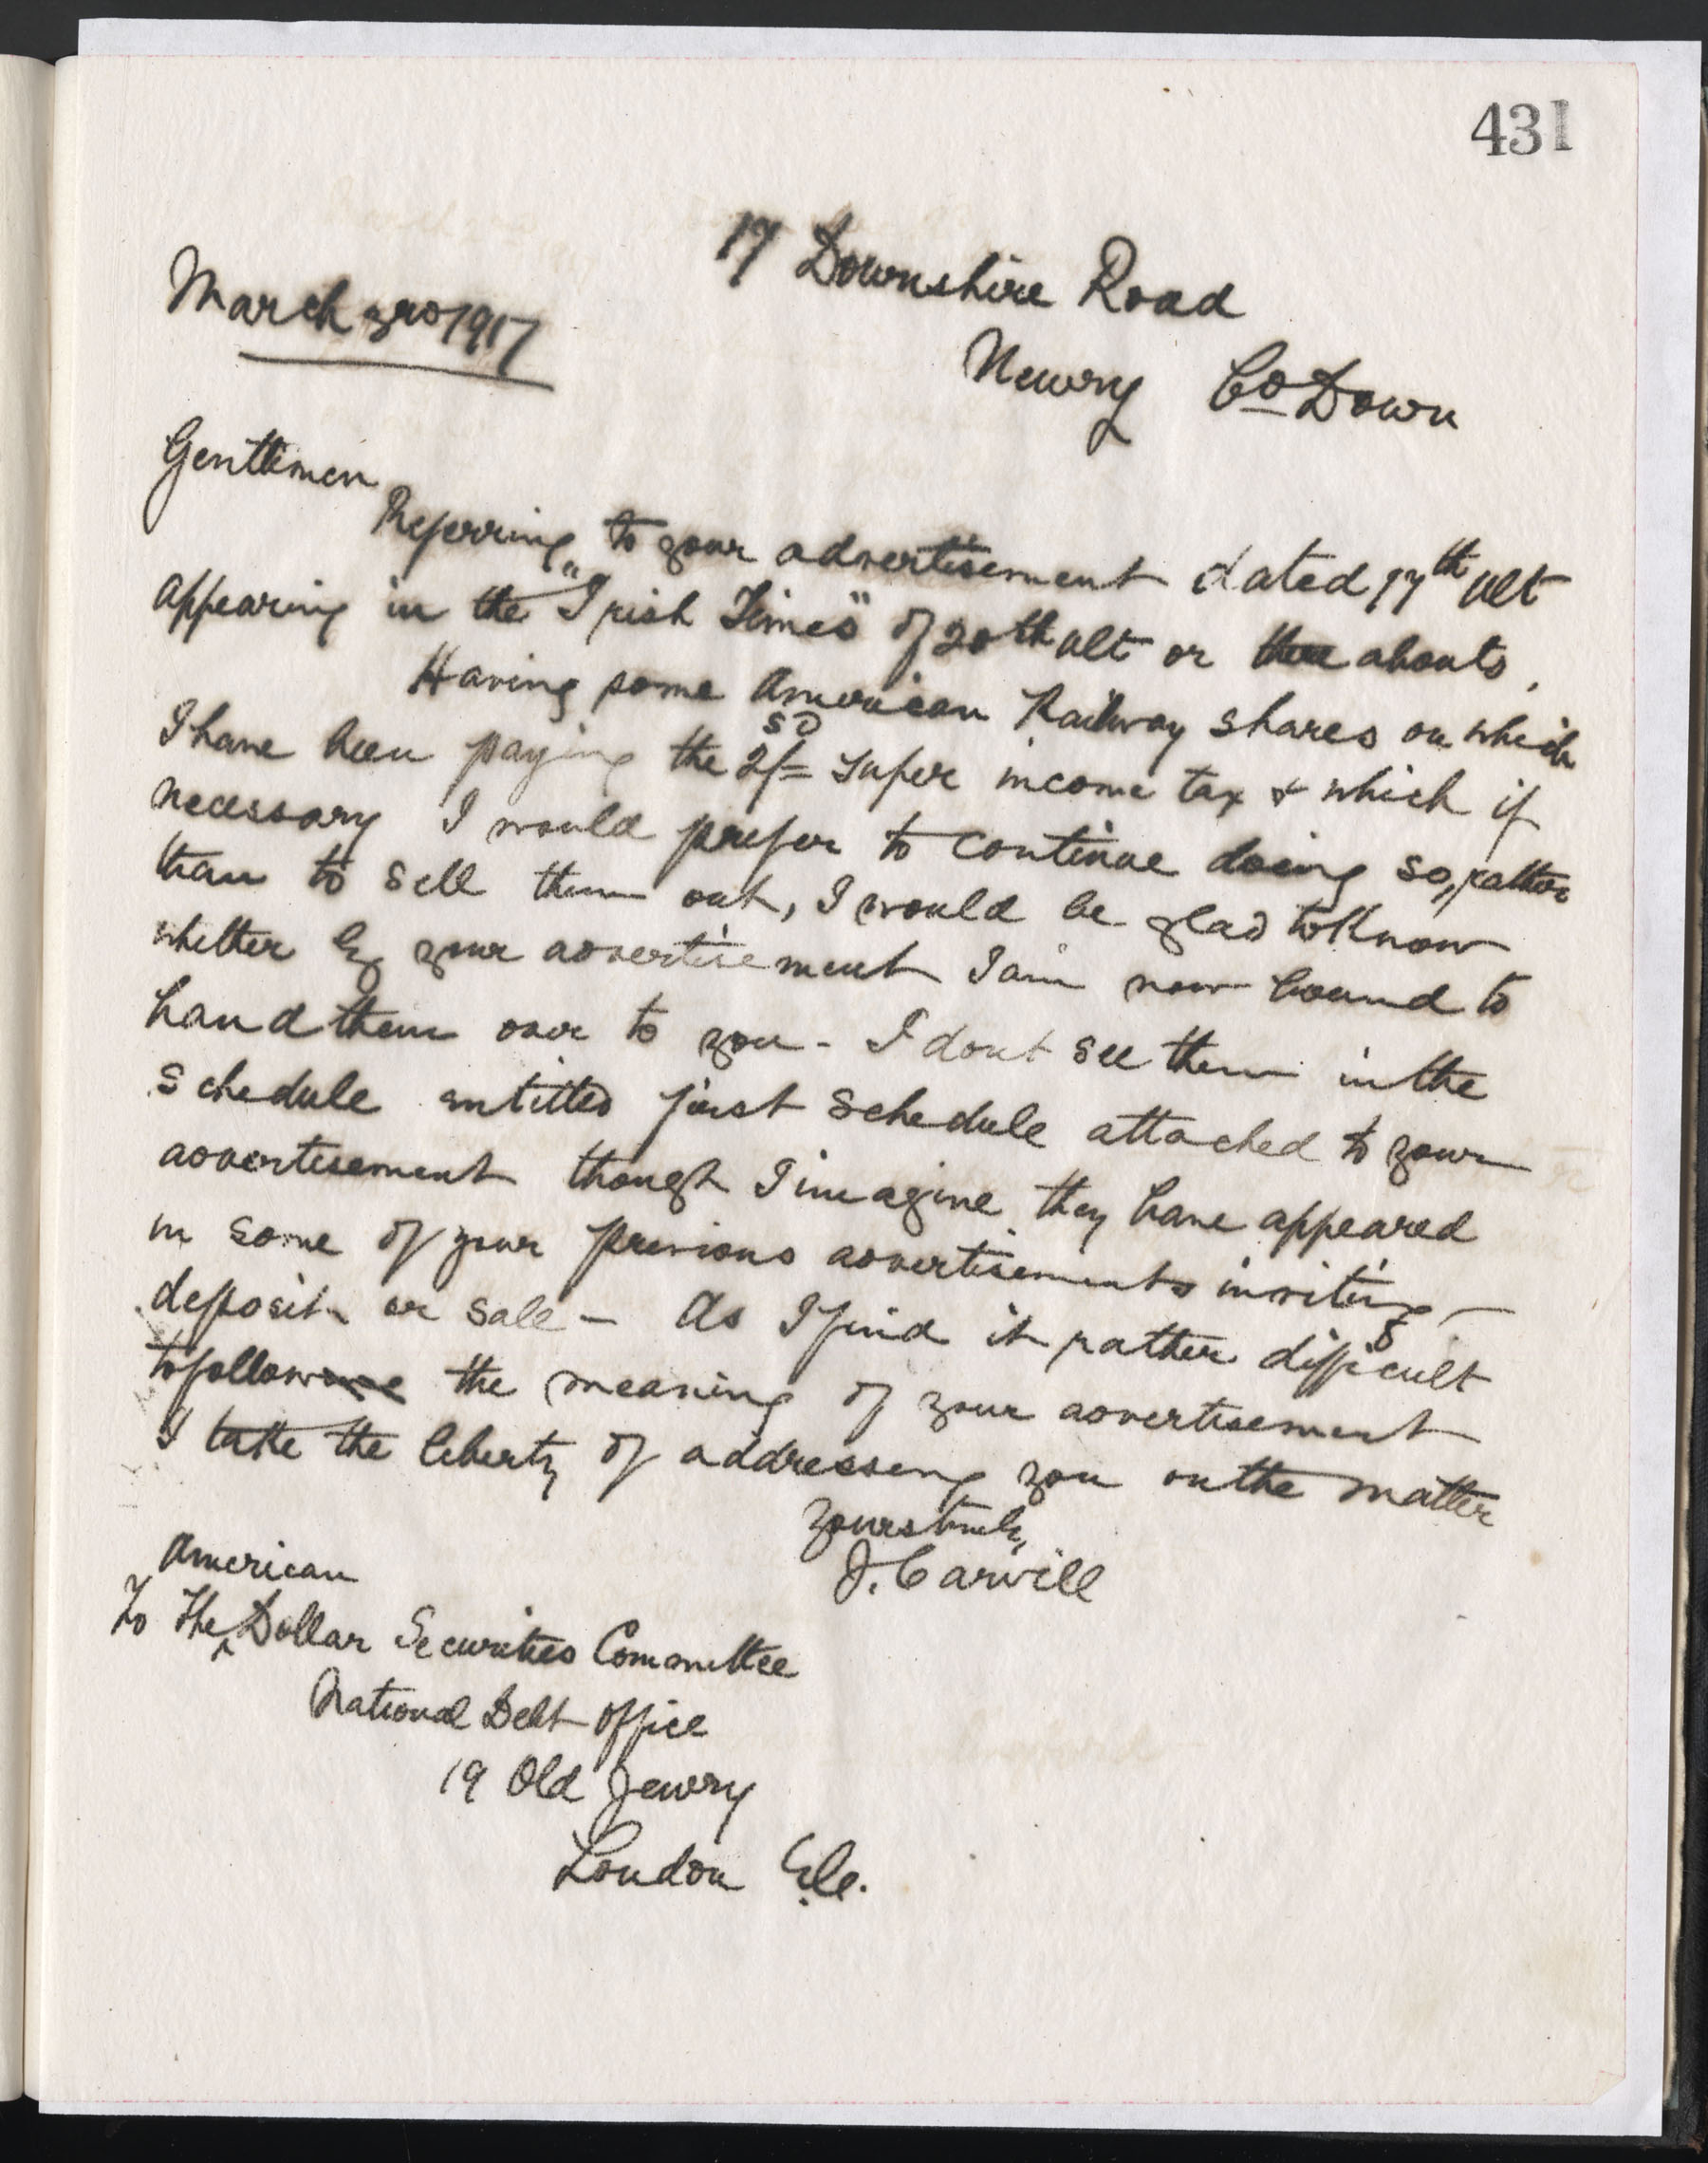 431
17 Downshire Road
March 3rd 1917
Newry Co Down
Gentlemen
Referring to your advertisement dated 17th ult
appearing in the "Irish Times" of 20th ult or there abouts,
Having some American Railway shares on which
I have been paying the 2/= super income tax & which if
necessary I would prefer to continue doing so, rather
than to sell them out, I would be glad to know
whether by your advertisement I am now bound to
hand them over to you - I dont see them in the
schedule entitled first schedule attached to your
advertisement though I imagine they have appeared
in some of your previous advertisements inviting -
deposit or sale - As I find it rather difficult
to follow the meaning of your advertisement
I take the liberty of addressing you on the matter
Yours truly,
J. Carvill
American
To The ^ Dollar Securities Committee
National Debt Office
19 Old Jewry
London E.C.